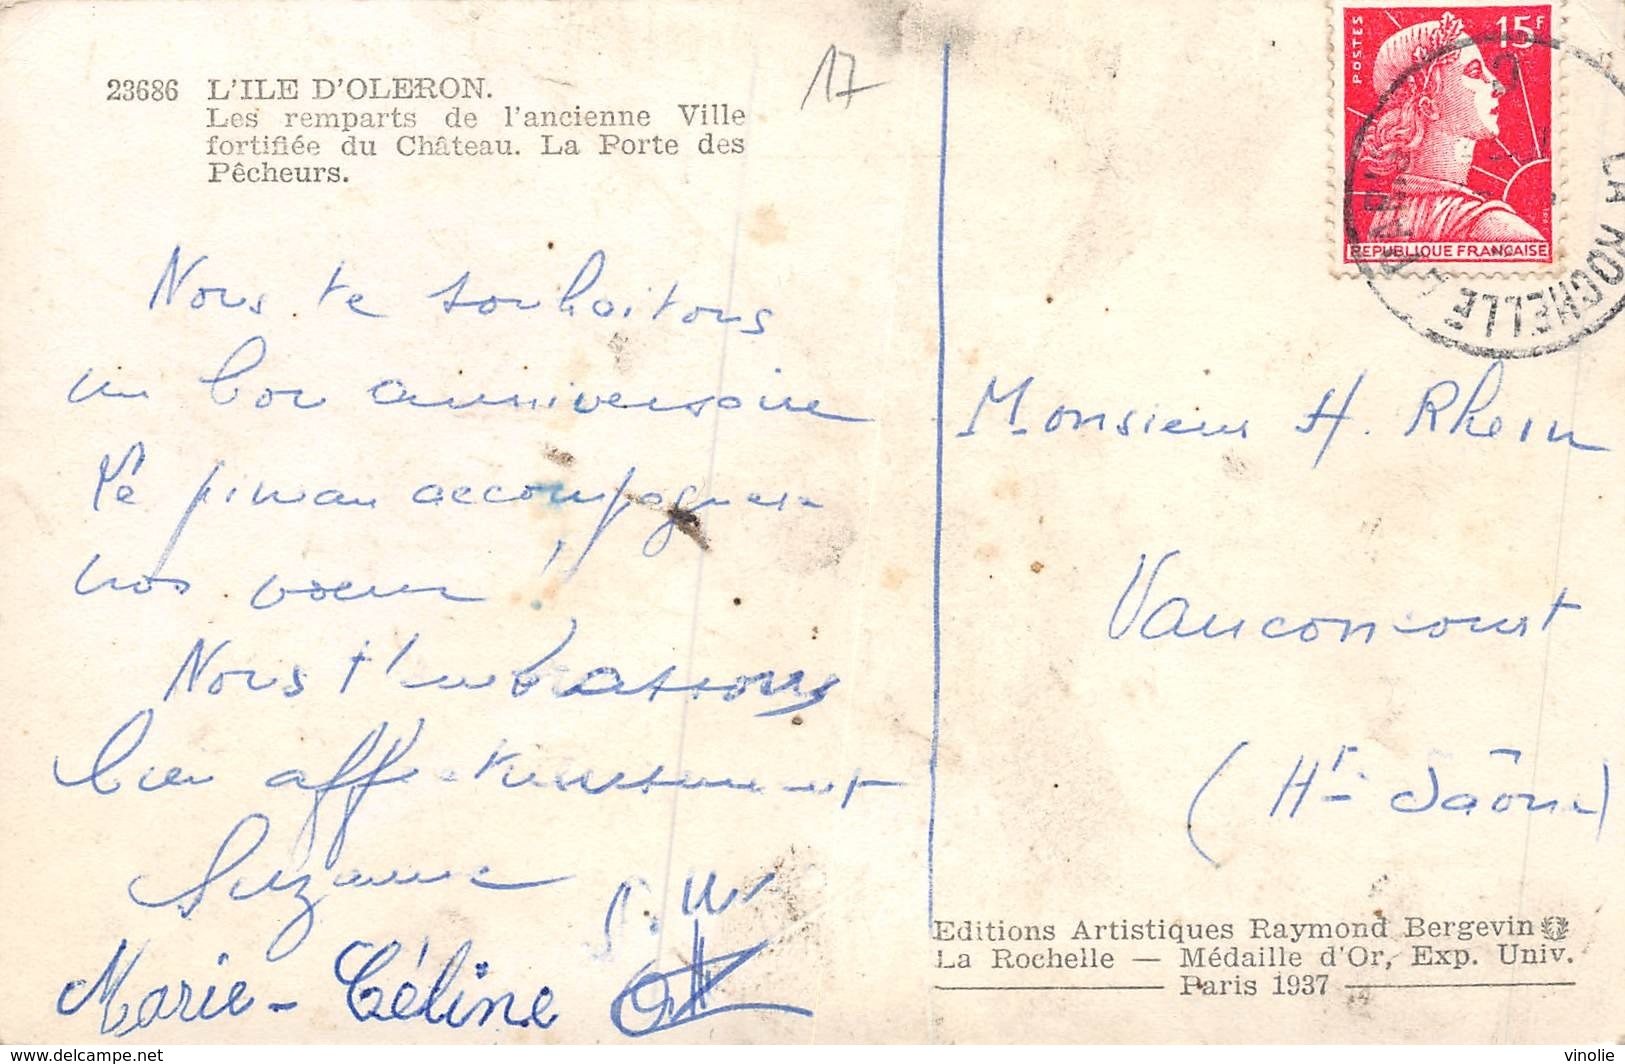 17
23686 L'ILE D'OLERON.
Les remparts de l'ancienne Ville
fortifiée du Château. La Porte des
Pêcheurs.
Nous te souhaitons
un bon anniversaire
Le pineau accompagnera
nos voeux !
Nous t'embrassons
bien affectueusement
Suzanne
Marie-Céline
POSTES
15F
REPUBLIQUE FRANÇAISE
LA ROCHELLE
Monsieur H. Rhein
Vauconcourt
(Hte Saône)
Editions Artistiques Raymond Bergevin
La Rochelle — Médaille d'Or, Exp. Univ.
Paris 1937
delcampe.net
vinolie